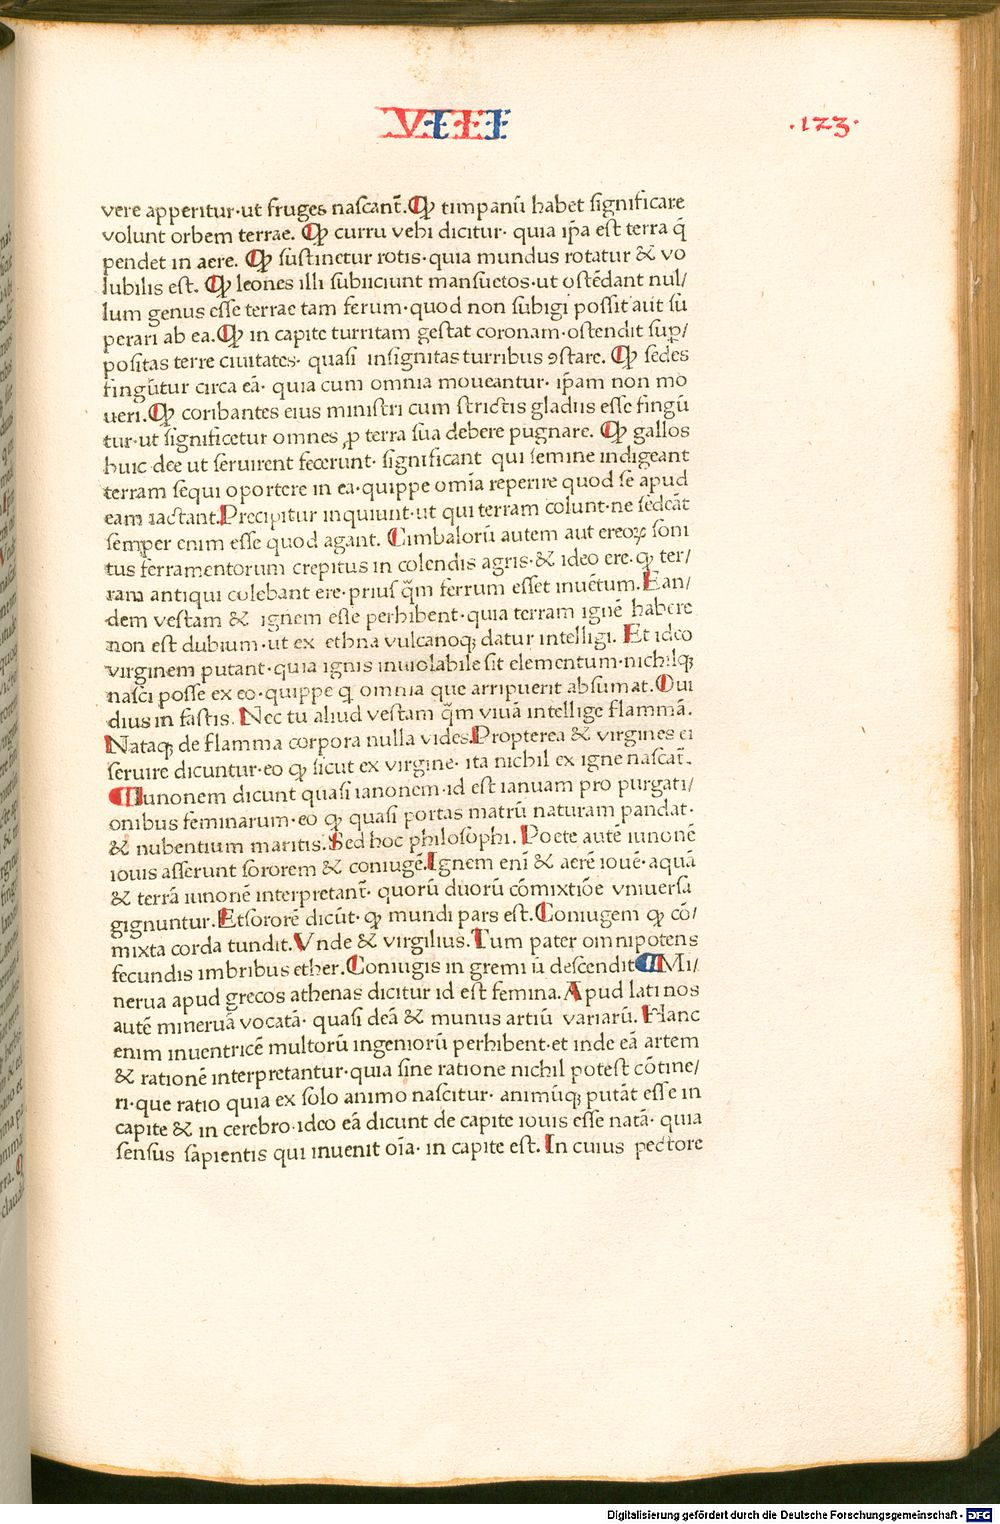 VIII
·123·
vere apperitur·ut fruges nascant̄. Qꝫ timpanū habet significare
volunt orbem terrae. Qꝫ curru vehi dicitur· quia ip̄a est terra q̄
pendet in aere. Qꝫ sustinetur rotis·quia mundus rotatur & vo
lubilis est. Qꝫ leones illi subiiciunt mansuetos·ut ostēdant nul/
lum genus esse terrae tam ferum·quod non subigi possit aut su
perari ab ea. Qꝫ in capite turritam gestat coronam·ostendit suꝑ/
positas terre ciuitates· quasi insignitas turribus ꝯstare. Qꝫ sedes
fingūtur circa eā· quia cum omnia moueantur· ip̄am non mo
ueri. Qꝫ coribantes eius ministri cum strictis gladiis esse fingū
tur·ut significetur omnes ꝓ terra sua debere pugnare. Qꝫ gallos
huic dee ut seruirent fecerunt· significant qui semine indigeant
terram sequi oportere in ea·quippe omīa reperire quod se apud
eam iactant. Precipitur inquiunt·ut qui terram colunt·ne sedeāt
semper enim esse quod agant. Cimbalorū autem aut ereoꝝ soni
tus ferramentorum crepitus in colendis agris·& ideo ere·qꝫ ter/
ram antiqui colebant ere·prius q̄m ferrum esset inuētum. Ean/
dem vestam & ignem esse perhibent·quia terram ignē habere
non est dubium·ut ex ethna vulcanoqꝫ datur intelligi. Et ideo
virginem putant·quia ignis inuiolabile sit elementum·nichilqꝫ
nasci posse ex eo·quippe q̄ omnia que arripuerit absumat. Oui
dius in fastis. Nec tu aliud vestam q̄m viuā intellige flammā.
Nataqꝫ de flamma corpora nulla vides. Propterea & virgines ei
seruire dicuntur·eo qꝫ sicut ex virgine· ita nichil ex igne nascat̄.
Iunonem dicunt quasi ianonem·id est ianuam pro purgati/
onibus feminarum·eo qꝫ quasi portas matrū naturam pandat·
& nubentium maritis. Sed hoc philosophi. Poete autē iunonē
iouis asserunt sororem & coniugē. Ignem enī & aerē iouē· aquā
& terrā iunonē interpretant̄· quorū duorū cōmixtiōe vniuersa
gignuntur. Et sororē dicūt· qꝫ mundi pars est. Coniugem qꝫ cō/
mixta corda tundit. Vnde & virgilius. Tum pater omnipotens
fecundis imbribus ether. Coniugis in gremiū descendit Mi/
nerua apud grecos athenas dicitur id est femina. Apud latinos
autē mineruā vocatā· quasi deā & munus artiū variarū. Hanc
enim inuentricē multorū ingeniorū perhibent·et inde eā artem
& rationē interpretantur·quia sine ratione nichil potest cōtine/
ri·que ratio quia ex solo animo nascitur· animūqꝫ putāt esse in
capite & in cerebro·ideo eā dicunt de capite iouis esse natā· quia
sensus sapientis qui inuenit oīa· in capite est. In cuius pectore
Digitalisierung gefördert durch die Deutsche Forschungsgemeinschaft - DFG